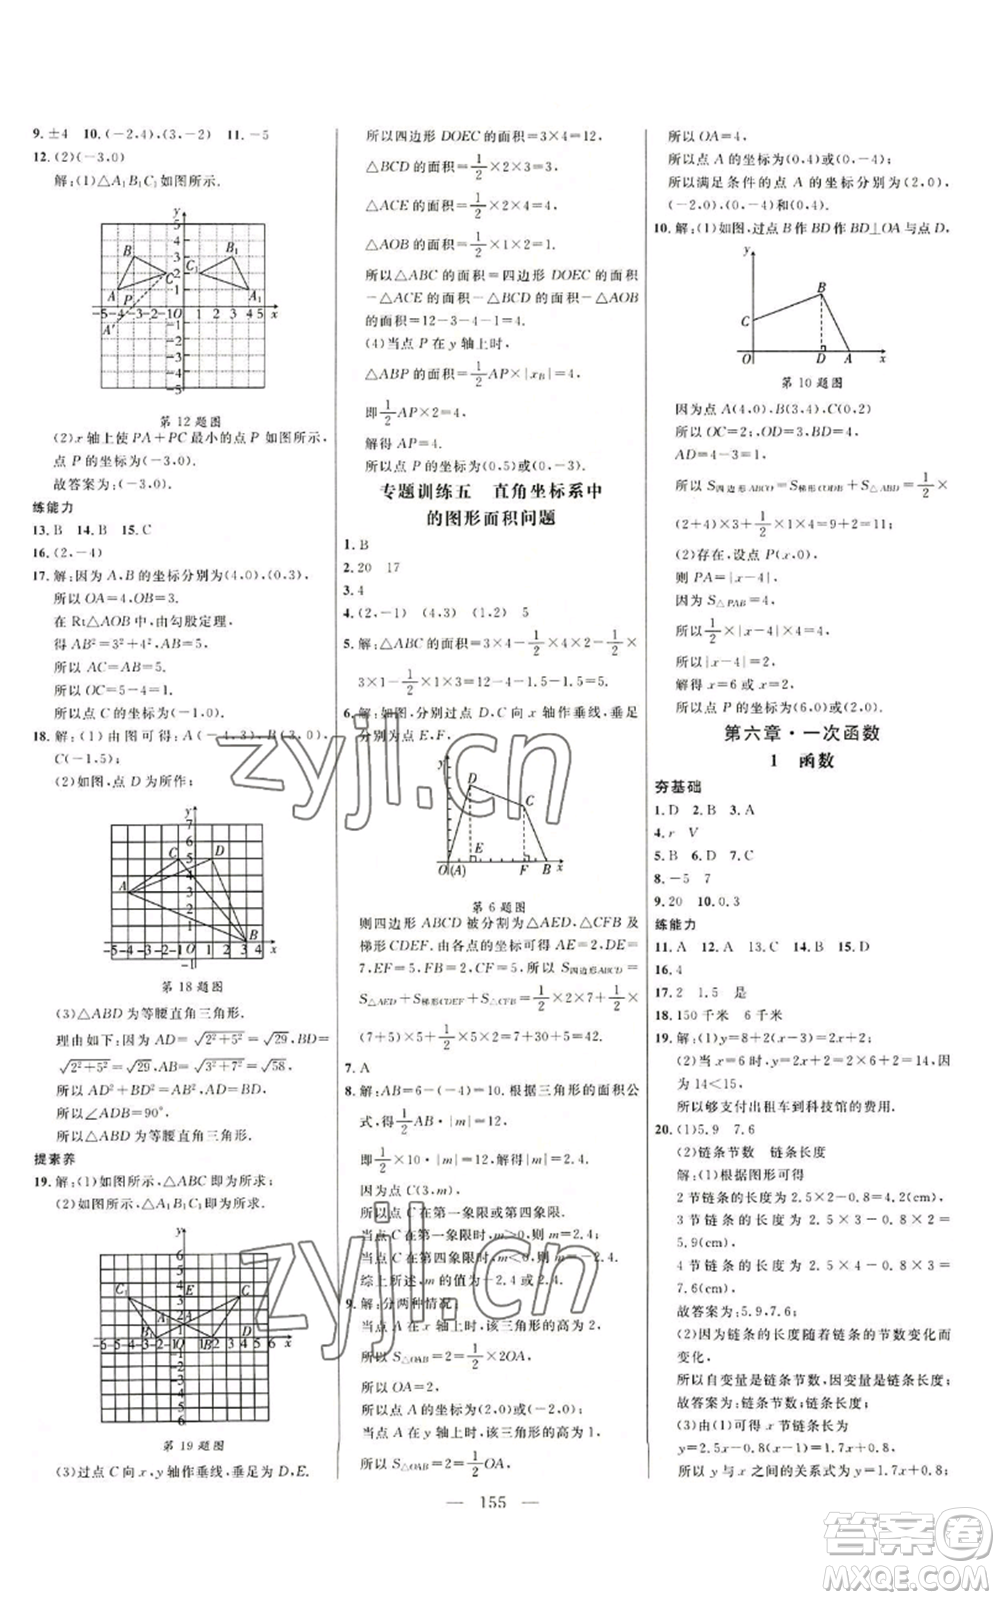 9. ±4 10. (-2,4),(3,-2) 11. -5
12. (2)(-3,0)
解:(1)△A₁B₁C₁如图所示.
第12题图
(2)x轴上使PA+PC最小的点P如图所示,
点P的坐标为(-3,0).
故答案为:(-3,0).
练能力
13. B 14. B 15. C
16. (2,-4)
17. 解:因为A,B的坐标分别为(4,0),(0,3).
所以OA=4,OB=3.
在Rt△AOB中,由勾股定理,
得AB²=3²+4²,AB=5.
所以AC=AB=5.
所以OC=5-4=1.
所以点C的坐标为(-1,0).
18. 解:(1)由图可得:A(-4,3),B(3,0),
C(-1,5);
(2)如图,点D为所作;
第18题图
(3)△ABD为等腰直角三角形.
理由如下:因为AD=√(2²+5²)=√29,BD=
√(2²+5²)=√29,AB=√(3²+7²)=√58,
所以AD²+BD²=AB².
所以∠ADB=90°.
所以△ABD为等腰直角三角形.
提素养
19. 解:(1)如图所示,△ABC即为所求;
(2)如图所示,△A₁B₁C₁即为所求.
第19题图
(3)过点C向x,y轴作垂线,垂足为D,E.
所以四边形DOEC的面积=3×4=12,
△BCD的面积=1/2×2×3=3,
△ACE的面积=1/2×2×4=4,
△AOB的面积=1/2×2×1=1.
所以△ABC的面积=四边形DOEC的面积
-△ACE的面积-△BCD的面积-△AOB
的面积=12-3-4-1=4.
(4)当点P在y轴上时,
△ABP的面积=1/2AP×|x_B|=4,
即1/2AP×2=4,
解得AP=4.
所以点P的坐标为(0,5)或(0,-3).
专题训练五 直角坐标系中
的图形面积问题
1. B
2. 20 17
3. 4
4. (2,-1) (4,3) (1,2) 5
5. 解:△ABC的面积=3×4-1/2×4×2-1/2
×3×1-1/2×1×3=12-4-1.5-1.5=5.
6. 解:如图,分别过点D,C向x轴作垂线,垂足
分别为点E,F.
第6题图
则四边形ABCD被分割为△AED,△CFB及
梯形CDEF.由各点的坐标可得AE=2,DE=
7,EF=5,FB=2,CF=5.所以S四边形ABCD=
S△AED+S梯形CDEF+S△CFB=1/2×2×7+1/2×
(7+5)×5+1/2×2×5=7+30+5=42.
7. A
8. 解:AB=6-(-4)=10.根据三角形的面积公
式,得1/2AB·|m|=12,
即1/2×10·|m|=12,解得|m|=2.4.
因为点C(3,m),
所以点C在第一象限或第四象限.
当点C在第一象限时,m>0,则m=2.4;
当点C在第四象限时,m<0,则m=-2.4.
综上所述,m的值为-2.4或2.4.
9. 解:分两种情况:
当点A在x轴上时,该三角形的高为2,
所以S△OAB=2=1/2×2OA.
所以OA=2,
所以点A的坐标为(2,0)或(-2,0).
当点A在y轴上时,该三角形的高为1,
所以S△OAB=2=1/2OA.
所以OA=4,
所以点A的坐标为(0,4)或(0,-4).
所以满足条件的点A的坐标分别为(2,0),
(-2,0),(0,-4)和(0,4).
10. 解:(1)如图,过点B作BD作BD⊥OA与点D,
第10题图
因为点A(4,0),B(3,4),C(0,2),
所以OC=2;,OD=3,BD=4,
AD=4-3=1,
所以S四边形ABCO=S梯形CODB+S△ABD=1/2×
(2+4)×3+1/2×1×4=9+2=11.
(2)存在,设点P(x,0),
则PA=|x-4|,
因为S△PAB=4,
所以1/2×|x-4|×4=4.
所以|x-4|=2.
解得x=6或x=2.
所以点P的坐标为(6,0)或(2,0).
第六章·一次函数
1 函数
夯基础
1. D 2. B 3. A
4. r V
5. B 6. D 7. C
8. -5 7
9. 20 10. 0.3
练能力
11. A 12. A 13. C 14. B 15. D
16. 4
17. 2 1.5 是
18. 150千米 6千米
19. 解:(1)y=8+2(x-3)=2x+2;
(2)当x=6时,y=2x+2=2×6+2=14,
因为14<15.
所以够支付出租车到科技馆的费用.
20. (1)5.9 7.6
(2)链条节数 链条长度
解:(1)根据图形可得
2节链条的长度为2.5×2-0.8=4.2(cm),
3节链条的长度为2.5×3-0.8×2=
5.9(cm),
4节链条的长度为2.5×4-0.8×3=
7.6(cm).
故答案为:5.9,7.6;
(2)因为链条的长度随着链条的节数变化而
变化.
所以自变量是链条节数,因变量是链条长度,
故答案为:链条节数;链条长度;
(3)由(1)可得x节链条长为
y=2.5x-0.8(x-1)=1.7x+0.8;
所以y与x之间的关系式为y=1.7x+0.8;
— 155 —
zyjl.cn
zyjl.cn
答案圈
MXQE.COM